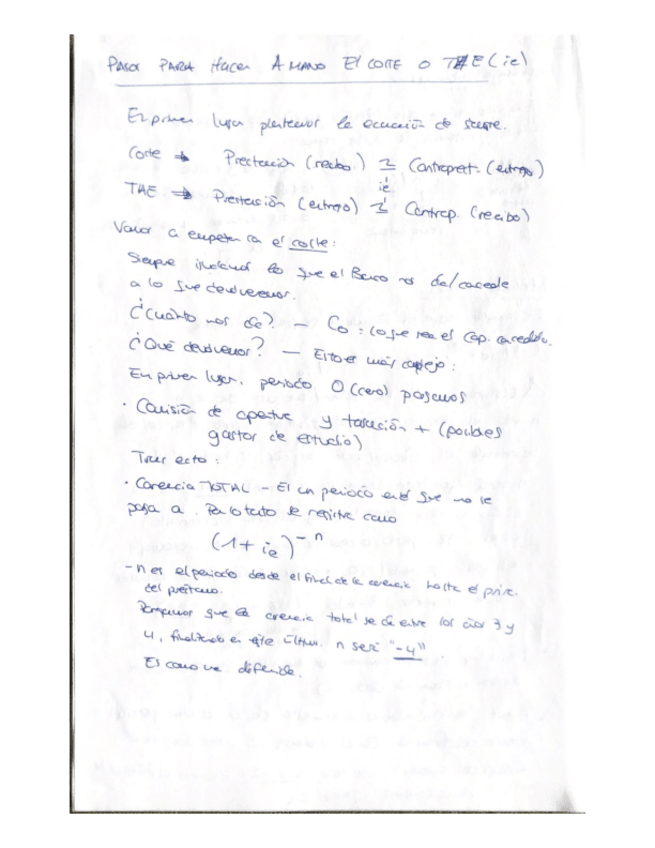 PASOS PARA HACER A MANO El COSTE O TAE (ie)
En primer lugar plantearnos la ecuación de siempre.
Coste → Prestación (recibo) = Contraprest. (entrego)
ie
TAE → Prestación (entrego) = Contrap. (recibo)
Vamos a empezar con el coste:
Siempre igualamos lo que el Banco nos da/concede
a lo que devolvemos.
¿Cuánto nos da? — Co: lo que sea el Cap. concedido.
¿Qué devolvemos? — Esto es más complejo:
En primer lugar, periodo O (cero) pagamos
· Comisión de apertura y tasación + (posibles
gastos de estudio)
Tras esto:
· Carencia TOTAL - Es un periodo en el que no se
paga a. Por lo tanto se registra como
(1 + ie)^-n
- n es el periodo desde el final de la carencia hasta el princ.
del préstamo.
Pongamos que la carencia total se da entre los años 3 y
4, finalizando en este último. n será "-4"
Es como una diferida.